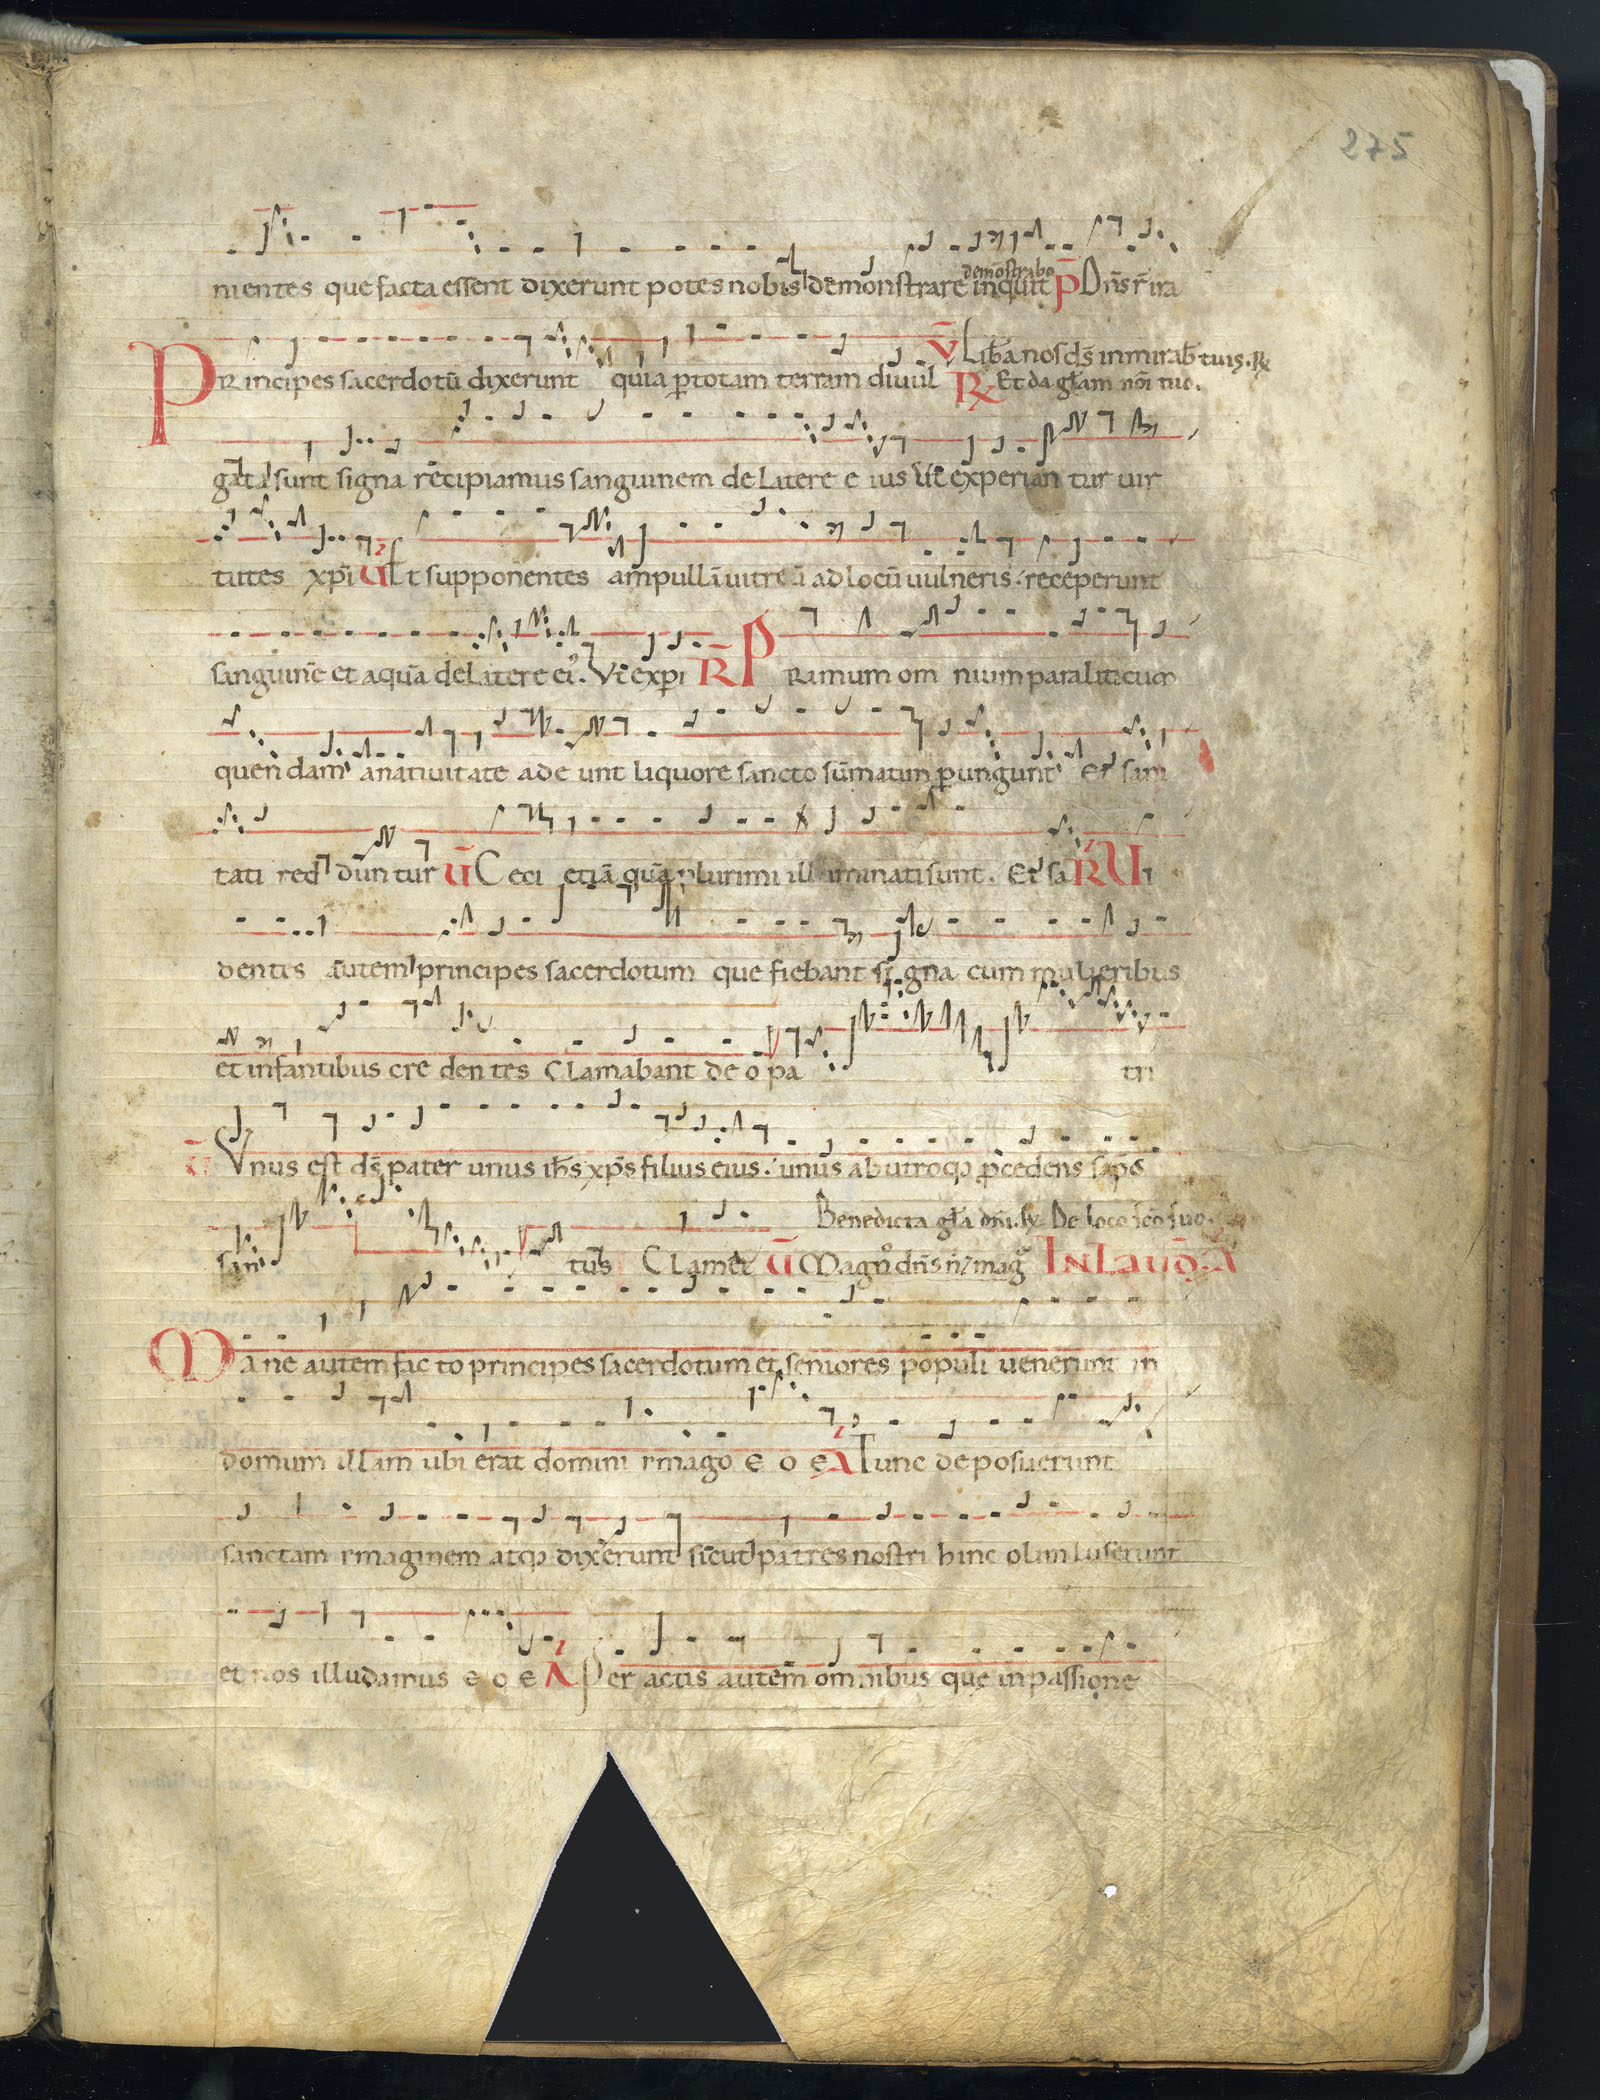 275
nientes que facta essent dixerunt potes nobis demonstrare inquit demõstrabo P̄ Dñs r̄ ira
Principes sacerdotũ dixerunt quia ꝑ totam terram diuul V̄ Lib̃a nos dš in mirab̃ tuis. R̷
R̷ Et da gl̃am nõi tuo.
gata sunt signa recipiamus sanguinem de latere eius Vt experian tur uir
tutes xp̃i V̄ Et supponentes ampullã uitreã ad locũ uulneris. receperunt
sanguinẽ et aquã de latere ei⁹. Vt exp̃i R̄ Primum om nium paraliticum
quen dam a natiuitate ade unt liquore sancto sũmatim ꝑungunt Et sani
tati red dun tur V̄ Ceci etiã quã plurimi illuminati sunt. Et sa R̄ Vi
dentes autem principes sacerdotum que fiebant signa cum mulieribus
et infantibus cre den tes Clamabant deo pa tri
V̄ Vnus est dš pater unus ih̃s xp̃s filius eius. unus ab utroq; ꝓcedens sap̃s
san tus Clamet V̄ Magn⁹ dñs n̄ / mag̃ IN LAVD̄. A
Benedicta gl̃a dñi. R̷ De loco sc̃o suo.
Mane autem fac to principes sacerdotum et seniores populi uenerunt in
domum illam ubi erat domini ymago e o e A Tunc deposuerunt
sanctam ymaginem atq; dixerunt sicut patres nostri hinc olim luserunt
et nos illudamus e o e A Per actis autem omnibus que in passione